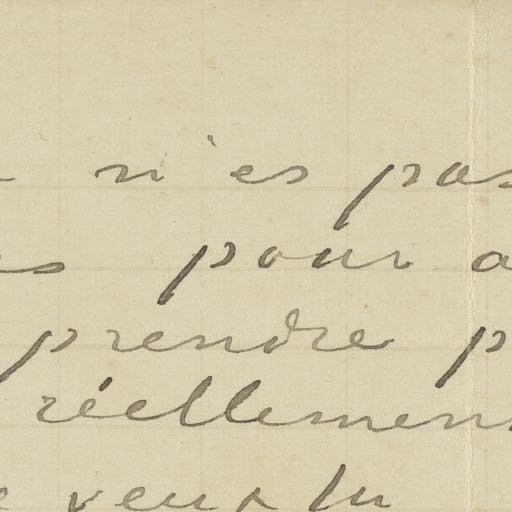 n'es pas
pour a
prendre p
réellement
veux tu